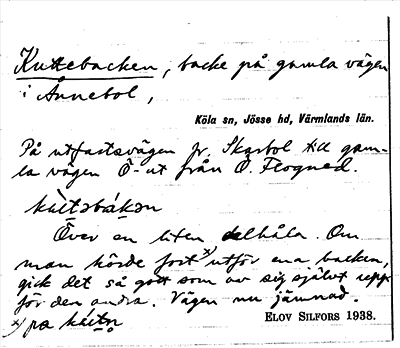 Kuttebacken, backe på gamla vägen
i Ånnebol,
Köla sn, Jösse hd, Värmlands län.
På utfartsvägen fr. Skarbol till gam-
la vägen Ö-ut från Ö. Flogned.
Över en liten dalhåla. Om
man körde fort x) utför ena backen,
gick det så gott som av sig självt upp
för den andra. Vägen nu jämnad.
x) på
ELOV SILFORS 1938.